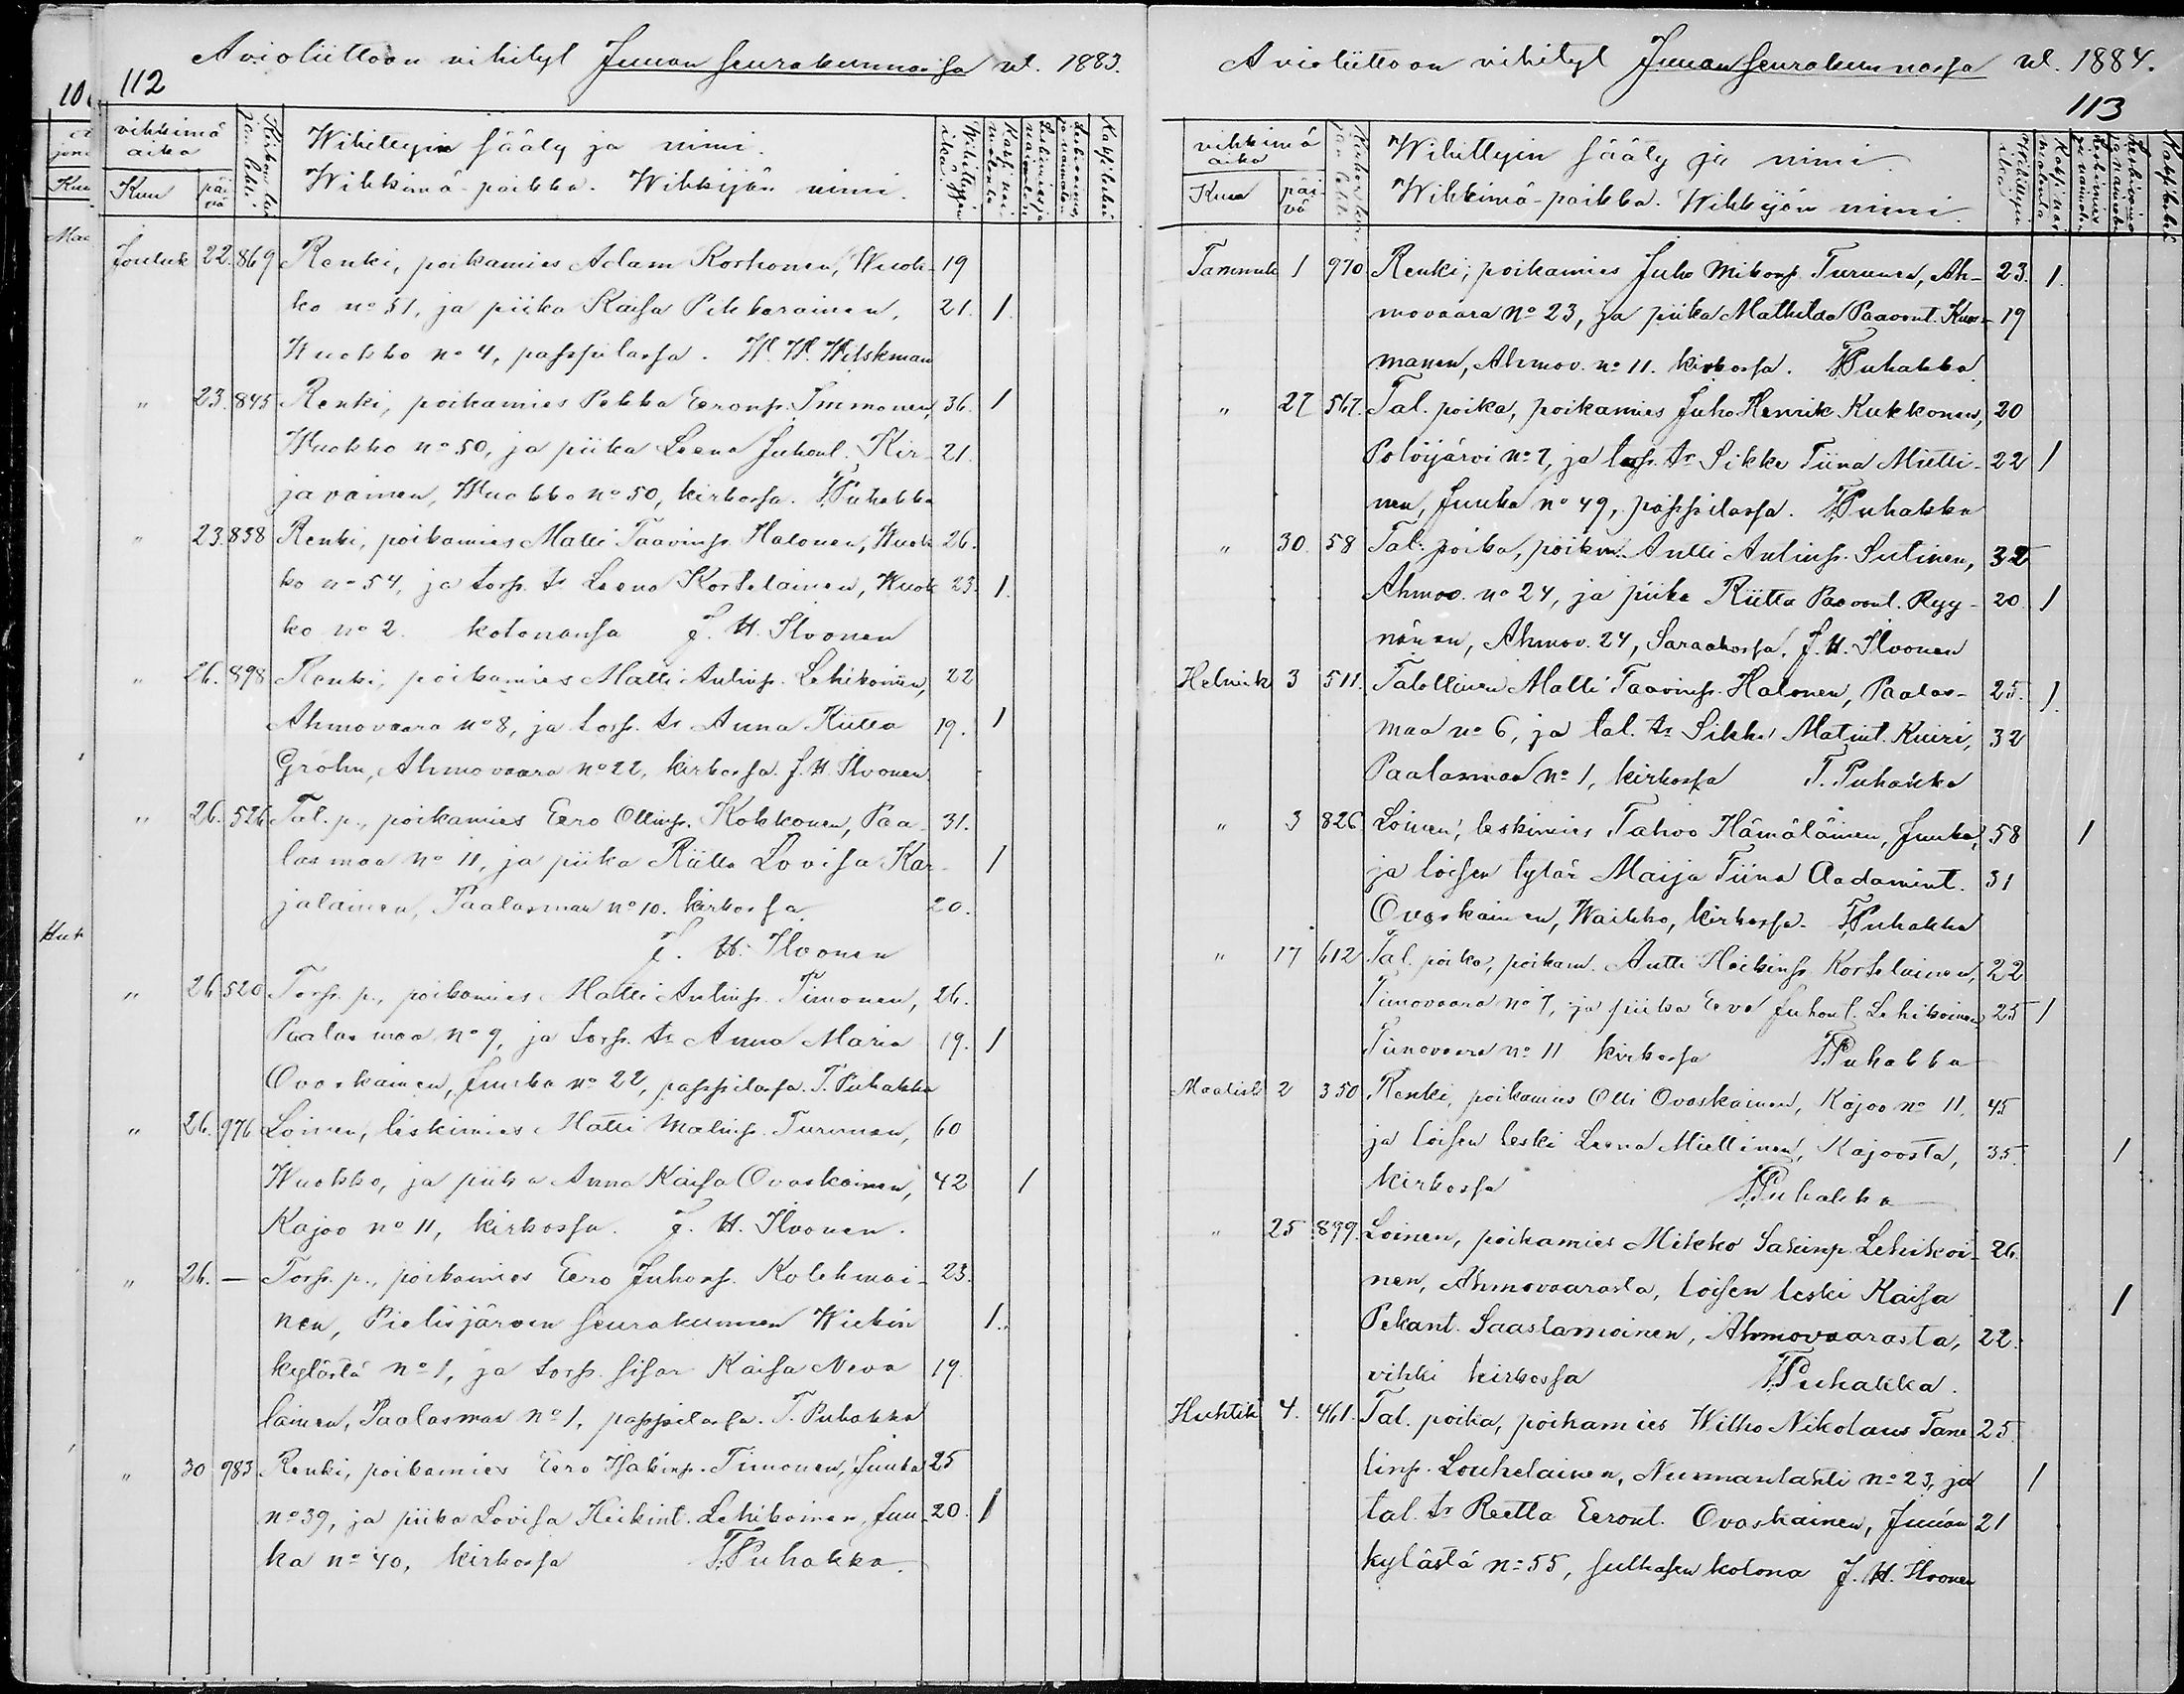 Avioliittoon vihityt Juuan seurakunnassa v. 1883.
112
vihkimä aika
Kuu
päivä
Wihittyin sääty ja nimi.
Wihkimä-paikka. Wihkijän nimi.
Jouluk 22. 869 Renki, poikamies Adam Korhonen, Wuok- 19
ko no 31, ja piika Kaisa Pehkarainen, 21. 1.
Wuokko no 4, pappilassa. W. W. Wilskman
" 23. 845 Renki, poikamies Pekka Eeronp. Immonen, 36. 1
Wuokko no 50, ja piika Leena Juhont. Kir- 21.
javainen, Wuokko no 50, kirkossa. T. Puhakka
" 23. 838 Renki, poikamies Matti Taavinp. Halonen, Wuok 26.
ko no 54, ja torp. tr Leena Kortelainen, Wuok 23. 1.
ko no 2. kotonansa J. H. Ilvonen
" 26. 898 Renki, poikamies Matti Antinp. Lehikoinen, 22
Ahmovaara no 8, ja torp. tr Anna Riitta 19. 1
Gröhn, Ahmovaara no 22, kirkossa. J. H. Ilvonen
" 26. 526 Tal. p., poikamies Eero Ollinp. Kokkonen, Paa- 31.
lasmaa no 11, ja piika Riitta Lovisa Kar- 1
jalainen, Paalasmaa no 10. kirkossa 20.
J. H. Ilvonen
" 26 520 Torp. p., poikamies Matti Antinp. Timonen, 26.
Paalasmaa no 9, ja torp. tr Anna Maria 19. 1
Ovaskainen, Juuka no 22, pappilassa. T. Puhakka
" 26. 976 Loinen, leskimies Matti Matinp. Turunen, 60
Wuokko, ja piika Anna Kaisa Ovaskainen, 42 1
Kajoo no 11, kirkossa. J. H. Ilvonen.
" 26. — Torp. p., poikamies Eero Juhonp. Kolehmai- 23.
nen, Pielisjärven seurakunnan Wiekin 1.
kylästä no 1, ja torp. sisar Kaisa Neva 19.
lainen, Paalasmaa no 1, pappilassa. T. Puhakka
" 30 983 Renki, poikamies Eero Isakinp. Timonen, Juuka 25
no 39, ja piika Lovisa Heikint. Lehikoinen, Juu- 20. 1
ka no 40, kirkossa T. Puhakka.
Avioliittoon vihityt Juuan seurakunnassa v. 1884.
113
vihkimä aika
Kuu
päivä
Wihittyin sääty ja nimi
Wihkimä-paikka. Wihkijän nimi.
Tammik 1 970 Renki, poikamies Juho Mikonp. Turunen, Ah- 23. 1.
movaara no 23, ja piika Mathilda Paavont. Kuos- 19
manen, Ahmov. no 11. kirkossa. T. Puhakka
" 27 567. Tal. poika, poikamies Juho Henrik Kukkonen, 20
Polvijärvi no 7, ja torp. tr Sikke Tiina Mietti- 22 1
nen, Juuka no 49, pappilassa. T. Puhakka
" 30. 58 Tal. poika, poikm. Antti Antinp. Sutinen, 32
Ahmov. no 24, ja piika Riitta Paavont. Ryy- 20. 1
nänen, Ahmov. 24, Saraahossa, J. H. Ilvonen
Helmik 3 511. Talollinen Matti Taavinp. Halonen, Paalas- 25. 1.
maa no 6, ja tal. tr Sikke Matint. Kuiri, 32
Paalasmaa no 1, kirkossa T. Puhakka
" 3 826 Loinen, leskimies Tahvo Hämäläinen, Juuka, 58 1
ja loisen tytär Maija Tiina Aadamint. 31
Ovaskainen, Waikko, kirkossa. T. Puhakka
" 17 612 Tal. poika, poikam. Antti Heikinp. Kortelainen, 22
Timovaara no 7, ja piika Eeva Juhont. Lehikoinen 25 1
Timovaara no 11 kirkossa T. Puhakka
Maalisk 2 350 Renki, poikamies Olli Ovaskainen, Kajoo no 11. 45
ja loisen leski Leena Miettinen, Kajoosta, 35. 1
kirkossa T. Puhakka
" 25 899. Loinen, poikamies Mikko Sakinp. Lehikoi- 26.
nen, Ahmovaarasta, loisen leski Kaisa 1
Pekant. Saastamoinen, Ahmovaarasta, 22.
vihki kirkossa T. Puhakka.
Huhtik 4. 461. Tal. poika, poikamies Wilho Nikolaus Tane 25.
linp. Louhelainen, Nunnanlahti no 23, ja 1
tal. tr Reetta Eeront. Ovaskainen, Juuan 21
kylästä no 55, sulhasen kotona J. H. Ilvonen